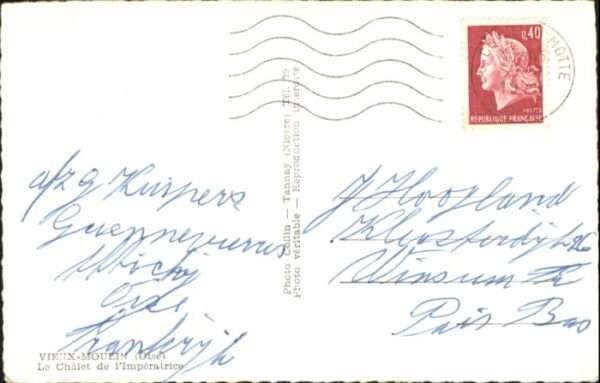 0,40
REPUBLIQUE FRANÇAISE
MOTTE
afz G Kuipers
Oise
Frankrijk
Photo Collin — Tannay (Nièvre) Tél. 79
Photo véritable — Reproduction interdite
J Hoogland
Kloosterdijk 26
Winsum
Pais Bas
VIEUX-MOULIN (Oise)
Le Châlet de l'Impératrice